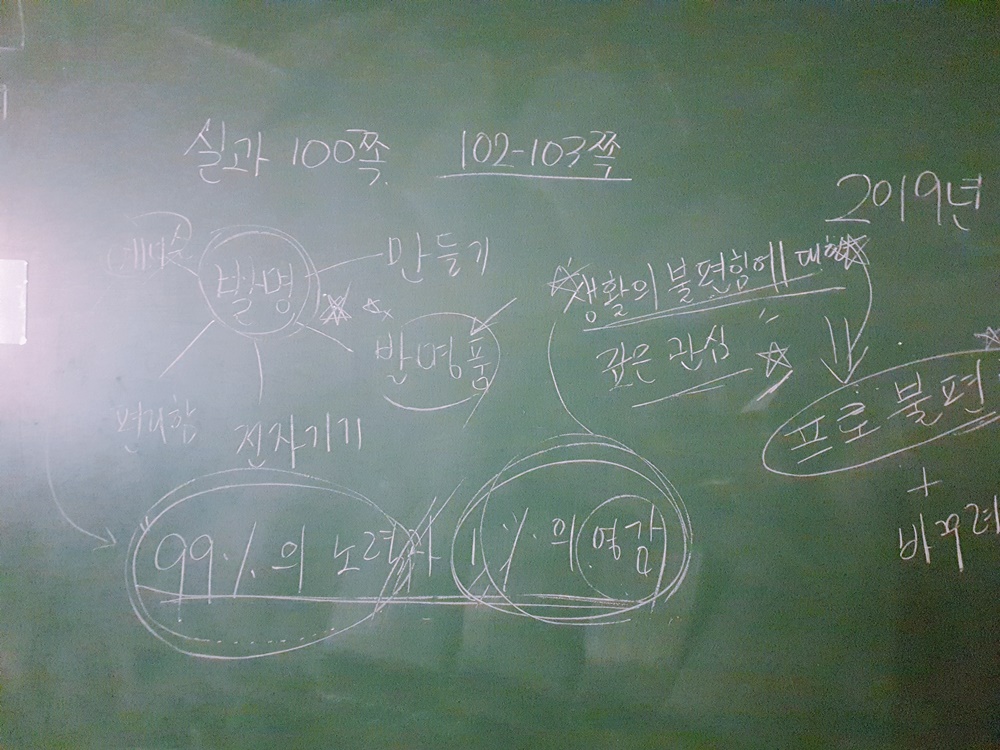 실과 100쪽 102-103쪽
2019년
발명
만들기
생활의 불편함에 대한
깊은 관심
발명품
프로불편
편리함
전자기기
+
바꾸려
99%의 노력과 1%의 영감